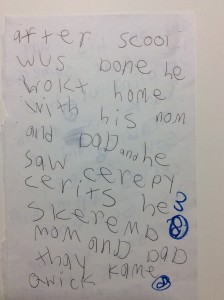 after scool
wus done he
wokt home
with his mom
and DaD and he
saw cerepy
cerits he
skeremd
mom and DaD
thay kame
qwick